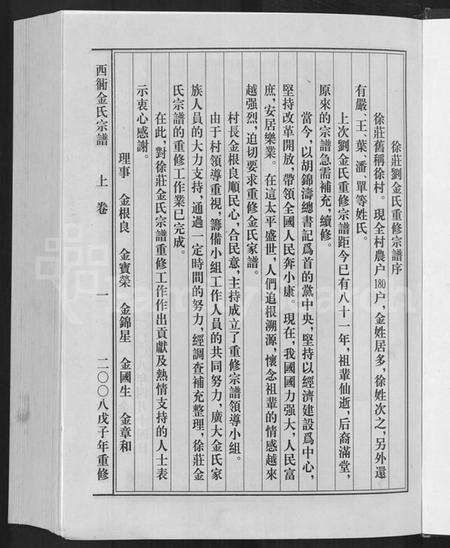 徐莊劉金氏重修宗譜序
徐莊舊稱徐村。現全村農户180户，金姓居多，徐姓次之，另外還
有嚴、王、葉、潘、單等姓氏。
上次劉金氏重修宗譜距今已有八十一年，祖輩仙逝，后裔滿堂，
原來的宗譜急需補充，續修。
當今，以胡錦濤總書記爲首的黨中央，堅持以經濟建設爲中心，
堅持改革開放，帶領全國人民奔小康。現在，我國國力强大，人民富
庶，安居樂業。在這太平盛世，人們追根溯源，懷念祖輩的情感越來
越强烈，迫切要求重修金氏家譜。
村長金根良順民心，合民意，主持成立了重修宗譜領導小組。
由于村領導重視，籌備小組工作人員的共同努力，廣大金氏家
族人員的大力支持，通過一定時間的努力，經調查補充整理，徐莊金
氏宗譜的重修工作業已完成。
在此，對徐莊金氏宗譜重修工作作出貢獻及熱情支持的人士表
示衷心感謝。
理事 金根良 金寶榮 金錦星 金國生 金章和
西衕金氏宗譜 上卷 一 二〇〇八戊子年重修